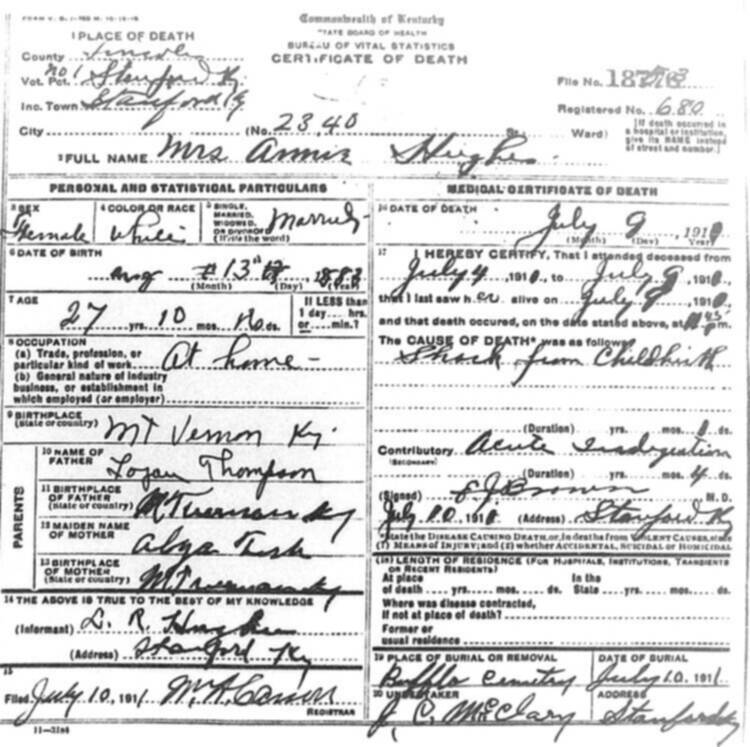 Commonwealth of Kentucky
STATE BOARD OF HEALTH
BUREAU OF VITAL STATISTICS
CERTIFICATE OF DEATH
1 PLACE OF DEATH
County Lincoln
Vot. Pct. No 1 Stanford Ky
Inc. Town Stanford Ky
City (No. 2340 St. Ward)
File No.
Registered No. 680
[If death occurred in a hospital or institution, give its NAME instead of street and number.]
2 FULL NAME Mrs Annie Hughes
PERSONAL AND STATISTICAL PARTICULARS
3 SEX Female
4 COLOR OR RACE White
5 SINGLE, MARRIED, WIDOWED, OR DIVORCED (Write the word) Married
6 DATE OF BIRTH
13th 1883
(Month) (Day) (Year)
7 AGE
27 yrs. 10 mos. ds.
If LESS than 1 day ... hrs. or ... min.?
8 OCCUPATION
(a) Trade, profession, or particular kind of work At home
(b) General nature of industry
business, or establishment in
which employed (or employer)
9 BIRTHPLACE
(State or country) Mt Vernon Ky
PARENTS
10 NAME OF FATHER Logan Thompson
11 BIRTHPLACE OF FATHER (State or country) Mt Vernon Ky
12 MAIDEN NAME OF MOTHER
13 BIRTHPLACE OF MOTHER (State or country) Mt Vernon Ky
14 THE ABOVE IS TRUE TO THE BEST OF MY KNOWLEDGE
(Informant) L. R. Hughes
(Address) Stanford Ky
15
Filed July 10, 1911
REGISTRAR
11-3184
MEDICAL CERTIFICATE OF DEATH
16 DATE OF DEATH
July 9 191
(Month) (Day) (Year)
17 I HEREBY CERTIFY, That I attended deceased from
July 4 191 , to July 9 191 ,
that I last saw her alive on July 9 191 ,
and that death occured, on the date stated above, at m.
The CAUSE OF DEATH* was as follows:
Shock from Childbirth
(Duration) yrs. mos. ds.
Contributory Acute Indigestion
(SECONDARY)
(Duration) yrs. mos. 4 ds.
(Signed) Brown M. D.
July 10 191 (Address) Stanford Ky
*State the DISEASE CAUSING DEATH, or, in deaths from VIOLENT CAUSES, state
(1) MEANS OF INJURY; and (2) whether ACCIDENTAL, SUICIDAL or HOMICIDAL
(18) LENGTH OF RESIDENCE (FOR HOSPITALS, INSTITUTIONS, TRANSIENTS
OR RECENT RESIDENTS)
At place of death yrs. mos. ds. In the State yrs. mos. ds.
Where was disease contracted,
If not at place of death?
Former or
usual residence
19 PLACE OF BURIAL OR REMOVAL Buffalo Cemetry
DATE OF BURIAL July 10, 191
20 UNDERTAKER J. C. McClary
ADDRESS Stanford Ky